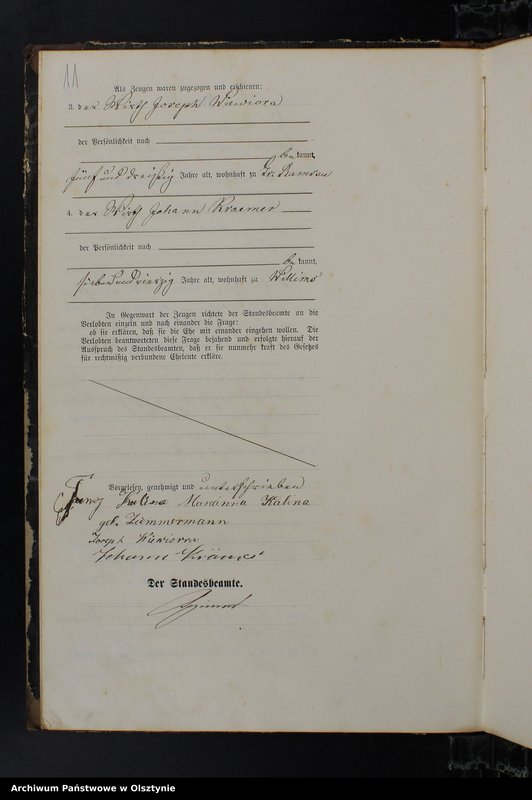 11
Als Zeugen waren zugezogen und erschienen:
3. der Wirth Joseph Wiewiora
der Persönlichkeit nach
be kannt,
fünfunddreißig Jahre alt, wohnhaft zu Gr. Ramsau
4. der Wirth Johann Kraemer
der Persönlichkeit nach
be kannt,
siebenundvierzig Jahre alt, wohnhaft zu Willims
In Gegenwart der Zeugen richtete der Standesbeamte an die
Verlobten einzeln und nach einander die Frage:
ob sie erklären, daß sie die Ehe mit einander eingehen wollen. Die
Verlobten beantworteten diese Frage bejahend und erfolgte hierauf der
Ausspruch des Standesbeamten, daß er sie nunmehr kraft des Gesetzes
für rechtmäßig verbundene Eheleute erkläre.
Vorgelesen, genehmigt und unterschrieben
Franz Kalina Marianna Kalina
geb. Zimmermann
Joseph Wiewiorra
Johann Krämer
Der Standesbeamte.
Archiwum Państwowe w Olsztynie